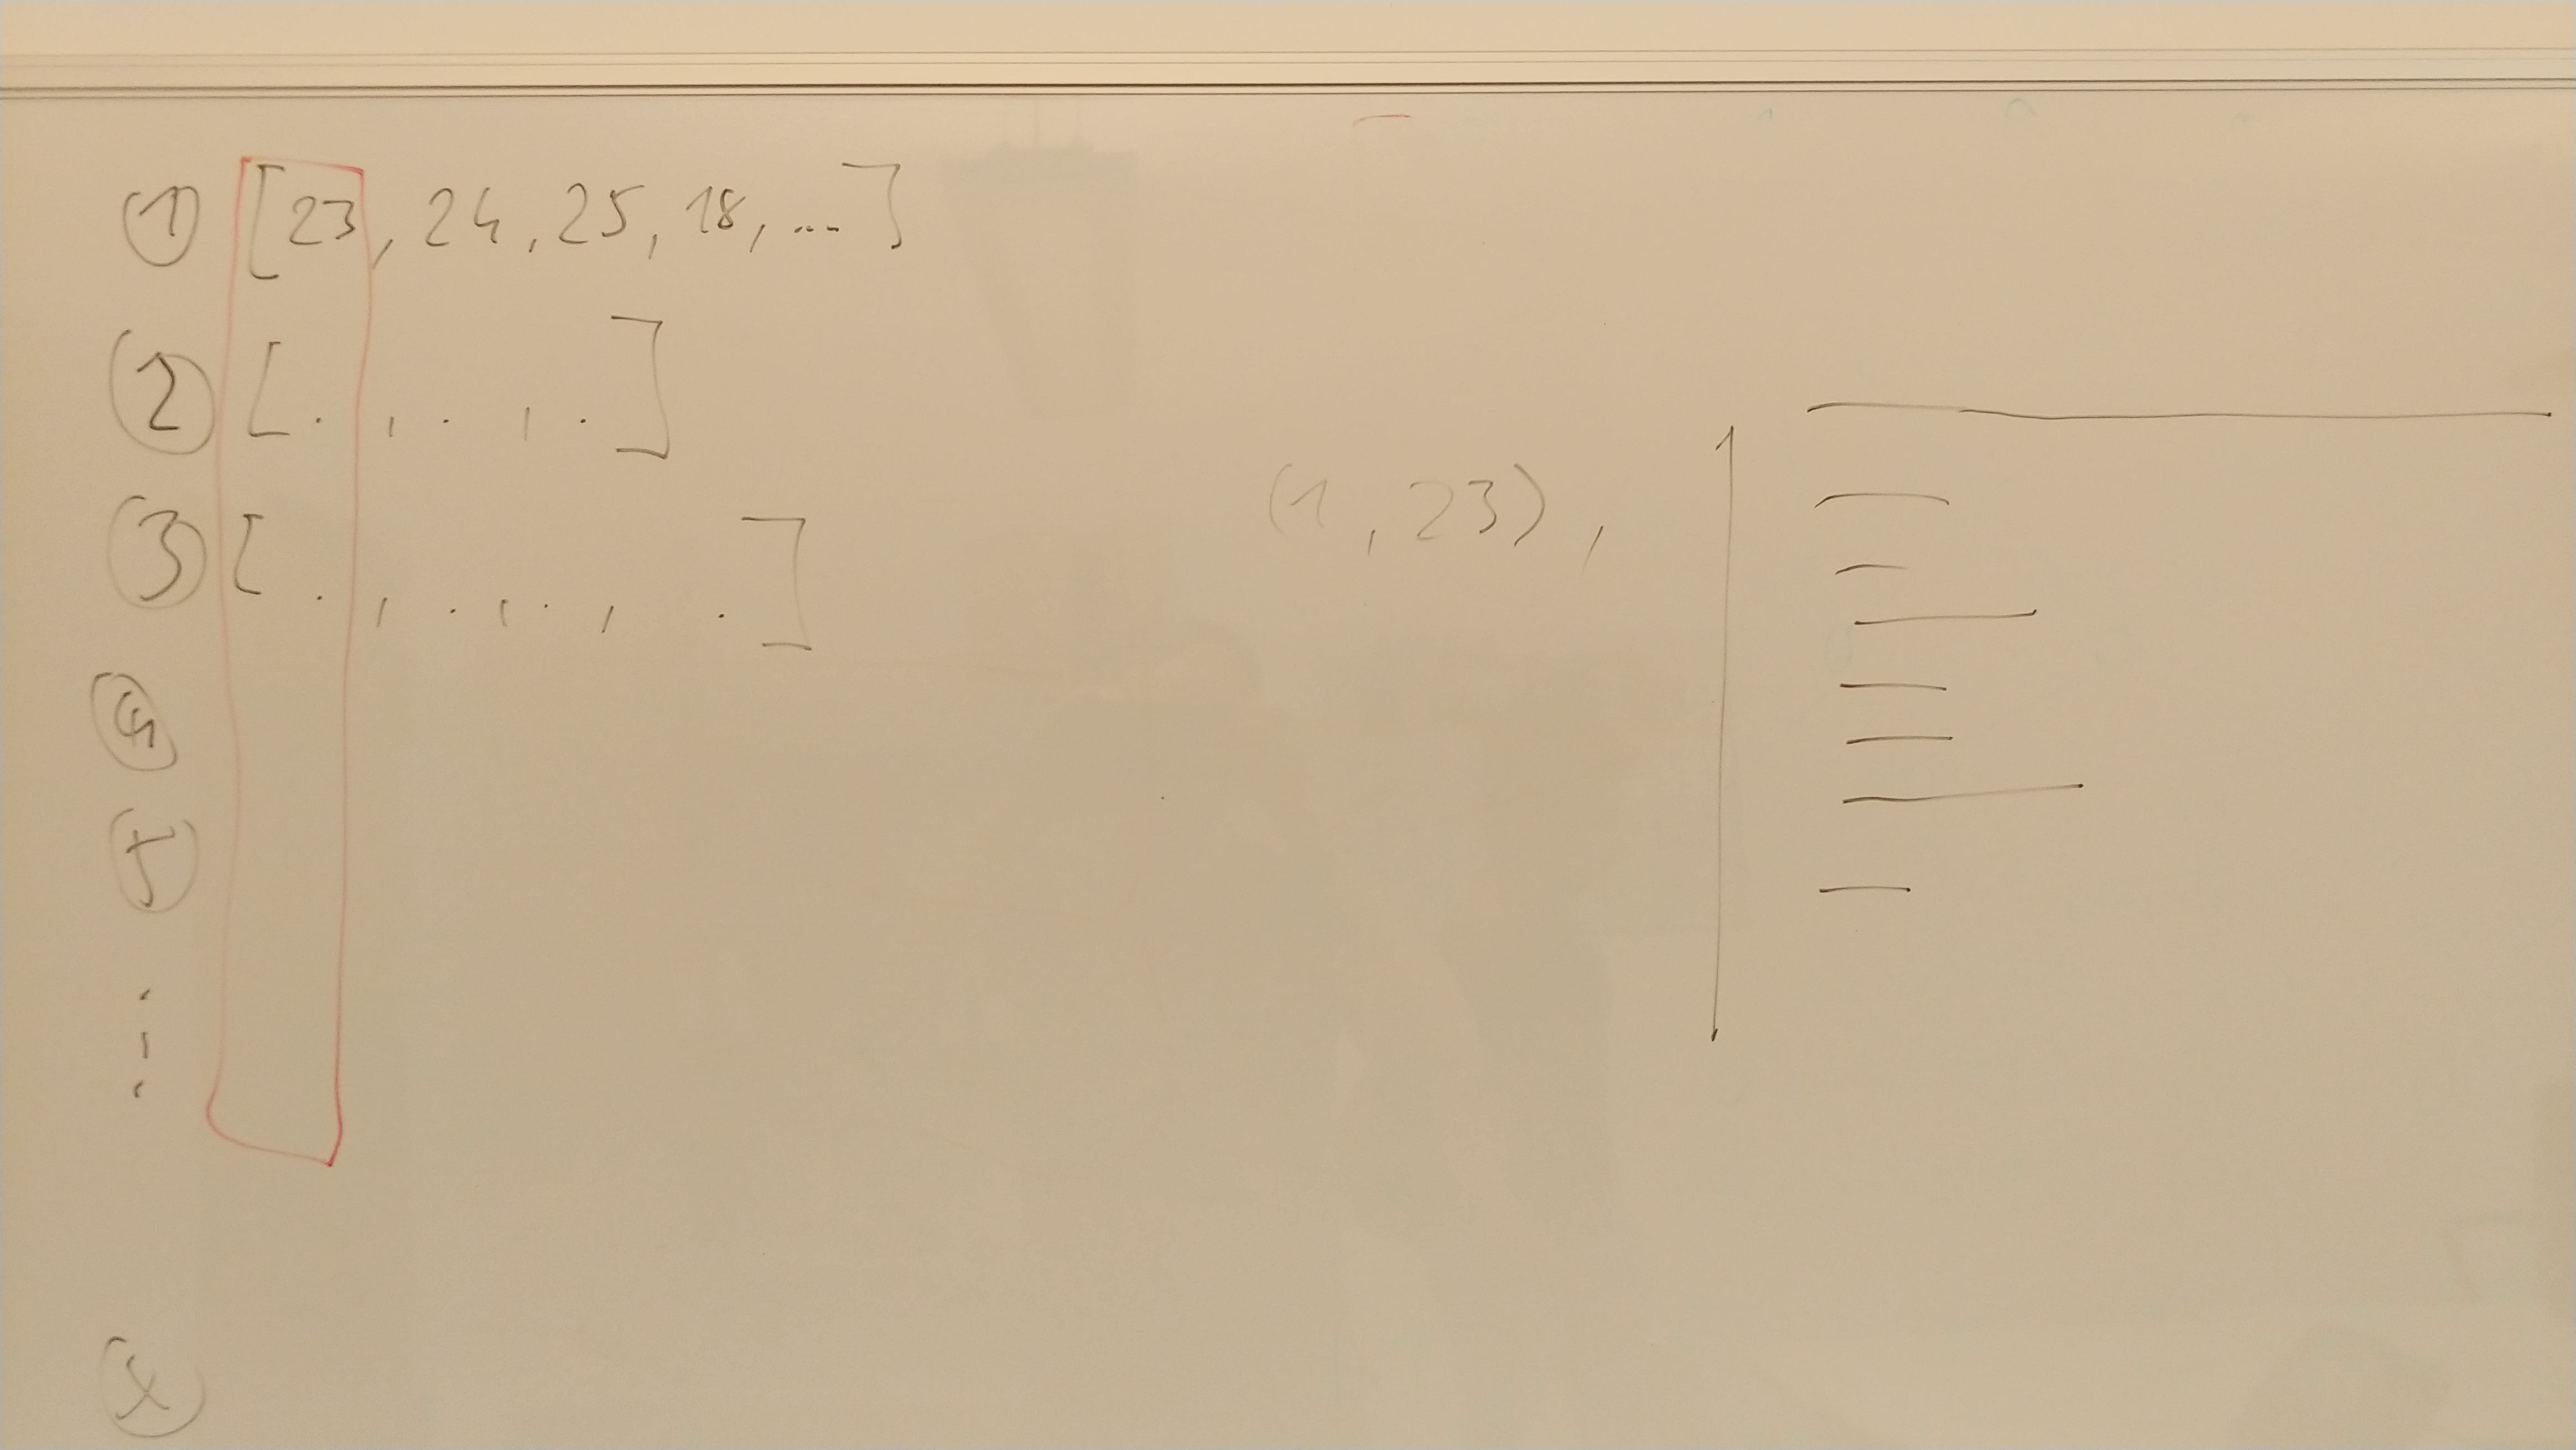 ① [23, 24, 25, 18, ...]
② [. , . , .]
③ [. , . , . , .]
④
⑤
(1, 23),
x